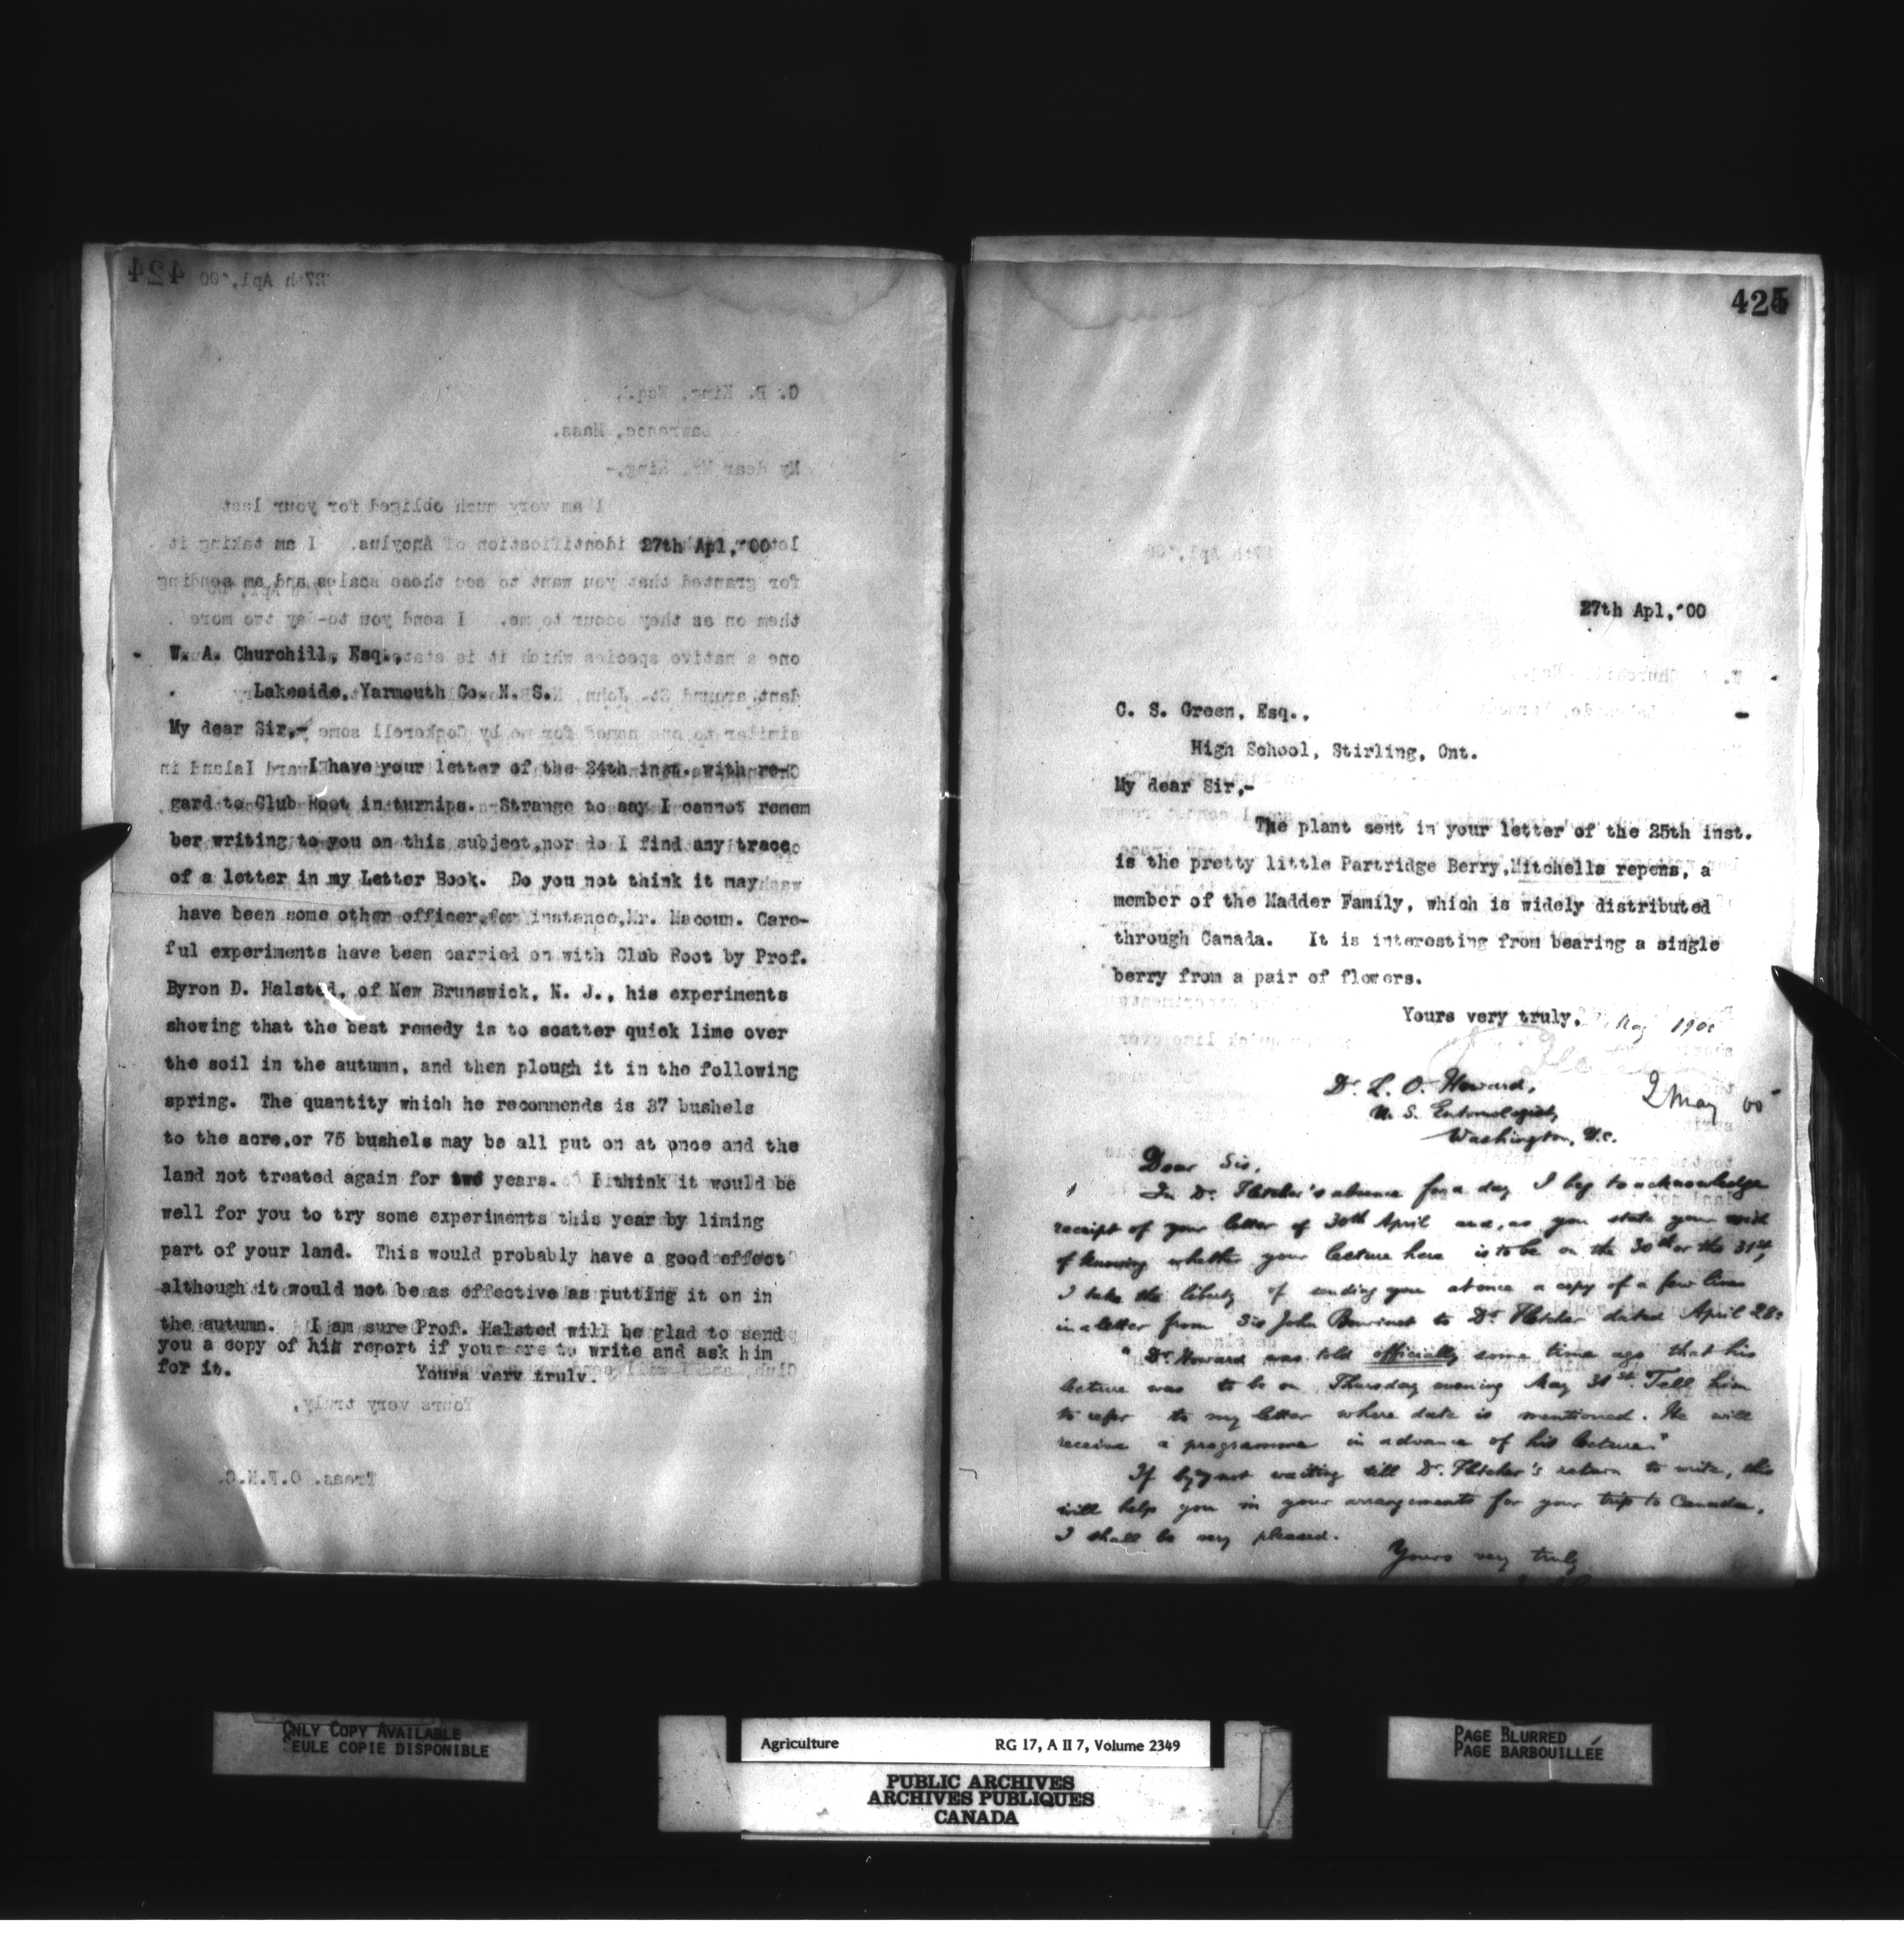 424
27th Apl,'00
W. A. Churchill, Esq.,
Lakeside, Yarmouth Co. N. S.
My dear Sir,-
I have your letter of the 24th inst. with re-
gard to Club Root in turnips. Strange to say I cannot remem
ber writing to you on this subject, nor do I find any trace
of a letter in my Letter Book. Do you not think it may
have been some other officer, for instance, Mr. Macoun. Care-
ful experiments have been carried on with Club Root by Prof.
Byron D. Halsted, of New Brunswick, N. J., his experiments
showing that the best remedy is to scatter quick lime over
the soil in the autumn, and then plough it in the following
spring. The quantity which he recommends is 37 bushels
to the acre, or 75 bushels may be all put on at once and the
land not treated again for two years. I think it would be
well for you to try some experiments this year by liming
part of your land. This would probably have a good effect
although it would not be as effective as putting it on in
the autumn. I am sure Prof. Halsted will be glad to send
you a copy of his report if you were to write and ask him
for it. Yours very truly.
425
27th Apl,'00
C. S. Green, Esq.,
High School, Stirling, Ont.
My dear Sir,-
The plant sent in your letter of the 25th inst.
is the pretty little Partridge Berry, Mitchella repens, a
member of the Madder Family, which is widely distributed
through Canada. It is interesting from bearing a single
berry from a pair of flowers.
Yours very truly,
May 1900
Dr. L. O. Howard,
2 May 00
U. S. Entomologist,
Washington, D.C.
Dear Sir,
In Dr. Fletcher's absence for a day I beg to acknowledge
receipt of your letter of 30th April and, as you state your wish
of knowing whether your lecture here is to be on the 30th or the 31st,
I take the liberty of sending you at once a copy of a few lines
in a letter from Sir John Bourinot to Dr. Fletcher dated April 28:
"Dr. Howard was told officially some time ago that his
lecture was to be on Thursday evening May 31st. Tell him
to refer to my letter where date is mentioned. He will
receive a programme in advance of his lecture."
If by not waiting till Dr. Fletcher's return to write, this
will help you in your arrangements for your trip to Canada,
I shall be very pleased.
Yours very truly
ONLY COPY AVAILABLE
SEULE COPIE DISPONIBLE
Agriculture RG 17, A II 7, Volume 2349
PUBLIC ARCHIVES
ARCHIVES PUBLIQUES
CANADA
PAGE BLURRED
PAGE BARBOUILLÉE